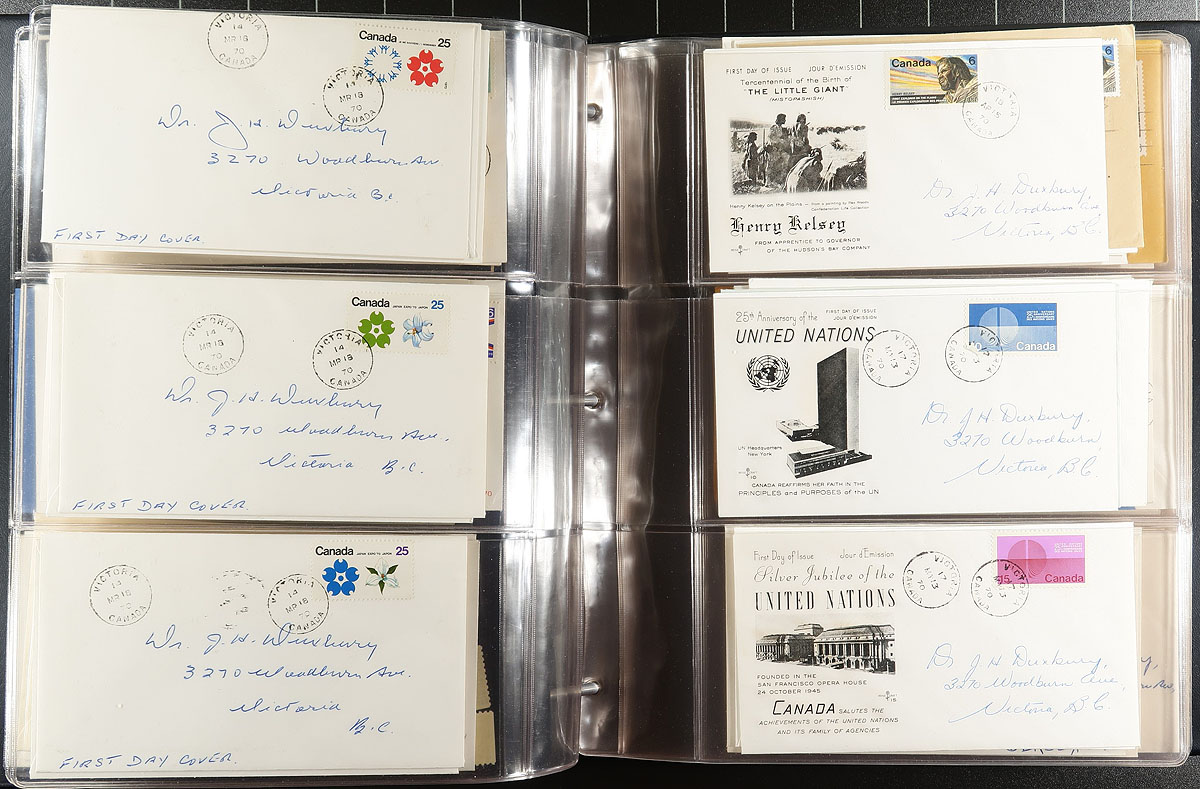 VICTORIA
14
MR 18
70
CANADA
Canada 25
VICTORIA
14
MR 18
70
CANADA
Dr. J. H. Duxbury
3270 Woodburn Ave.
Victoria B.C.
FIRST DAY COVER.
Canada JAPAN EXPO TO JAPON 25
VICTORIA
14
MR 18
70
CANADA
VICTORIA
14
MR 18
70
CANADA
Dr. J. H. Duxbury
3270 Woodburn Ave.
Victoria B.C.
FIRST DAY COVER.
Canada JAPAN EXPO TO JAPON 25
VICTORIA
14
MR 18
70
CANADA
VICTORIA
14
MR 18
70
CANADA
Dr. J. H. Duxbury
3270 Woodburn Ave.
Victoria
B.C.
FIRST DAY COVER.
FIRST DAY OF ISSUE JOUR D'EMISSION
Tercentennial of the Birth of
"THE LITTLE GIANT"
(MISTOPASHISH)
Henry Kelsey on the Plains — from a painting by Rex Woods
Confederation Life Collection
Henry Kelsey
FROM APPRENTICE TO GOVERNOR
OF THE HUDSON'S BAY COMPANY
Canada 6
HENRY KELSEY
FIRST EXPLORER OF THE PLAINS
6
VICTORIA
CANADA
70
Dr. J H. Duxbury,
3270 Woodburn Ave
Victoria, B.C.
25th Anniversary of the
FIRST DAY OF ISSUE
JOUR D'ÉMISSION
UNITED NATIONS
UN Headquarters
New York
10
CANADA REAFFIRMS HER FAITH IN THE
PRINCIPLES and PURPOSES of the UN
Canada
VICTORIA
17
70
CANADA
VICTORIA
70
CANADA
Dr. J H. Duxbury,
3270 Woodburn
Victoria, B.C.
First Day of Issue Jour d'Emission
Silver Jubilee of the
UNITED NATIONS
FOUNDED IN THE
SAN FRANCISCO OPERA HOUSE
24 OCTOBER 1945
15
CANADA SALUTES THE
ACHIEVEMENTS OF THE UNITED NATIONS
AND ITS FAMILY OF AGENCIES
15 Canada
VICTORIA
17
70
CANADA
VICTORIA
70
CANADA
Dr. J H. Duxbury,
3270 Woodburn Ave,
Victoria, B.C.